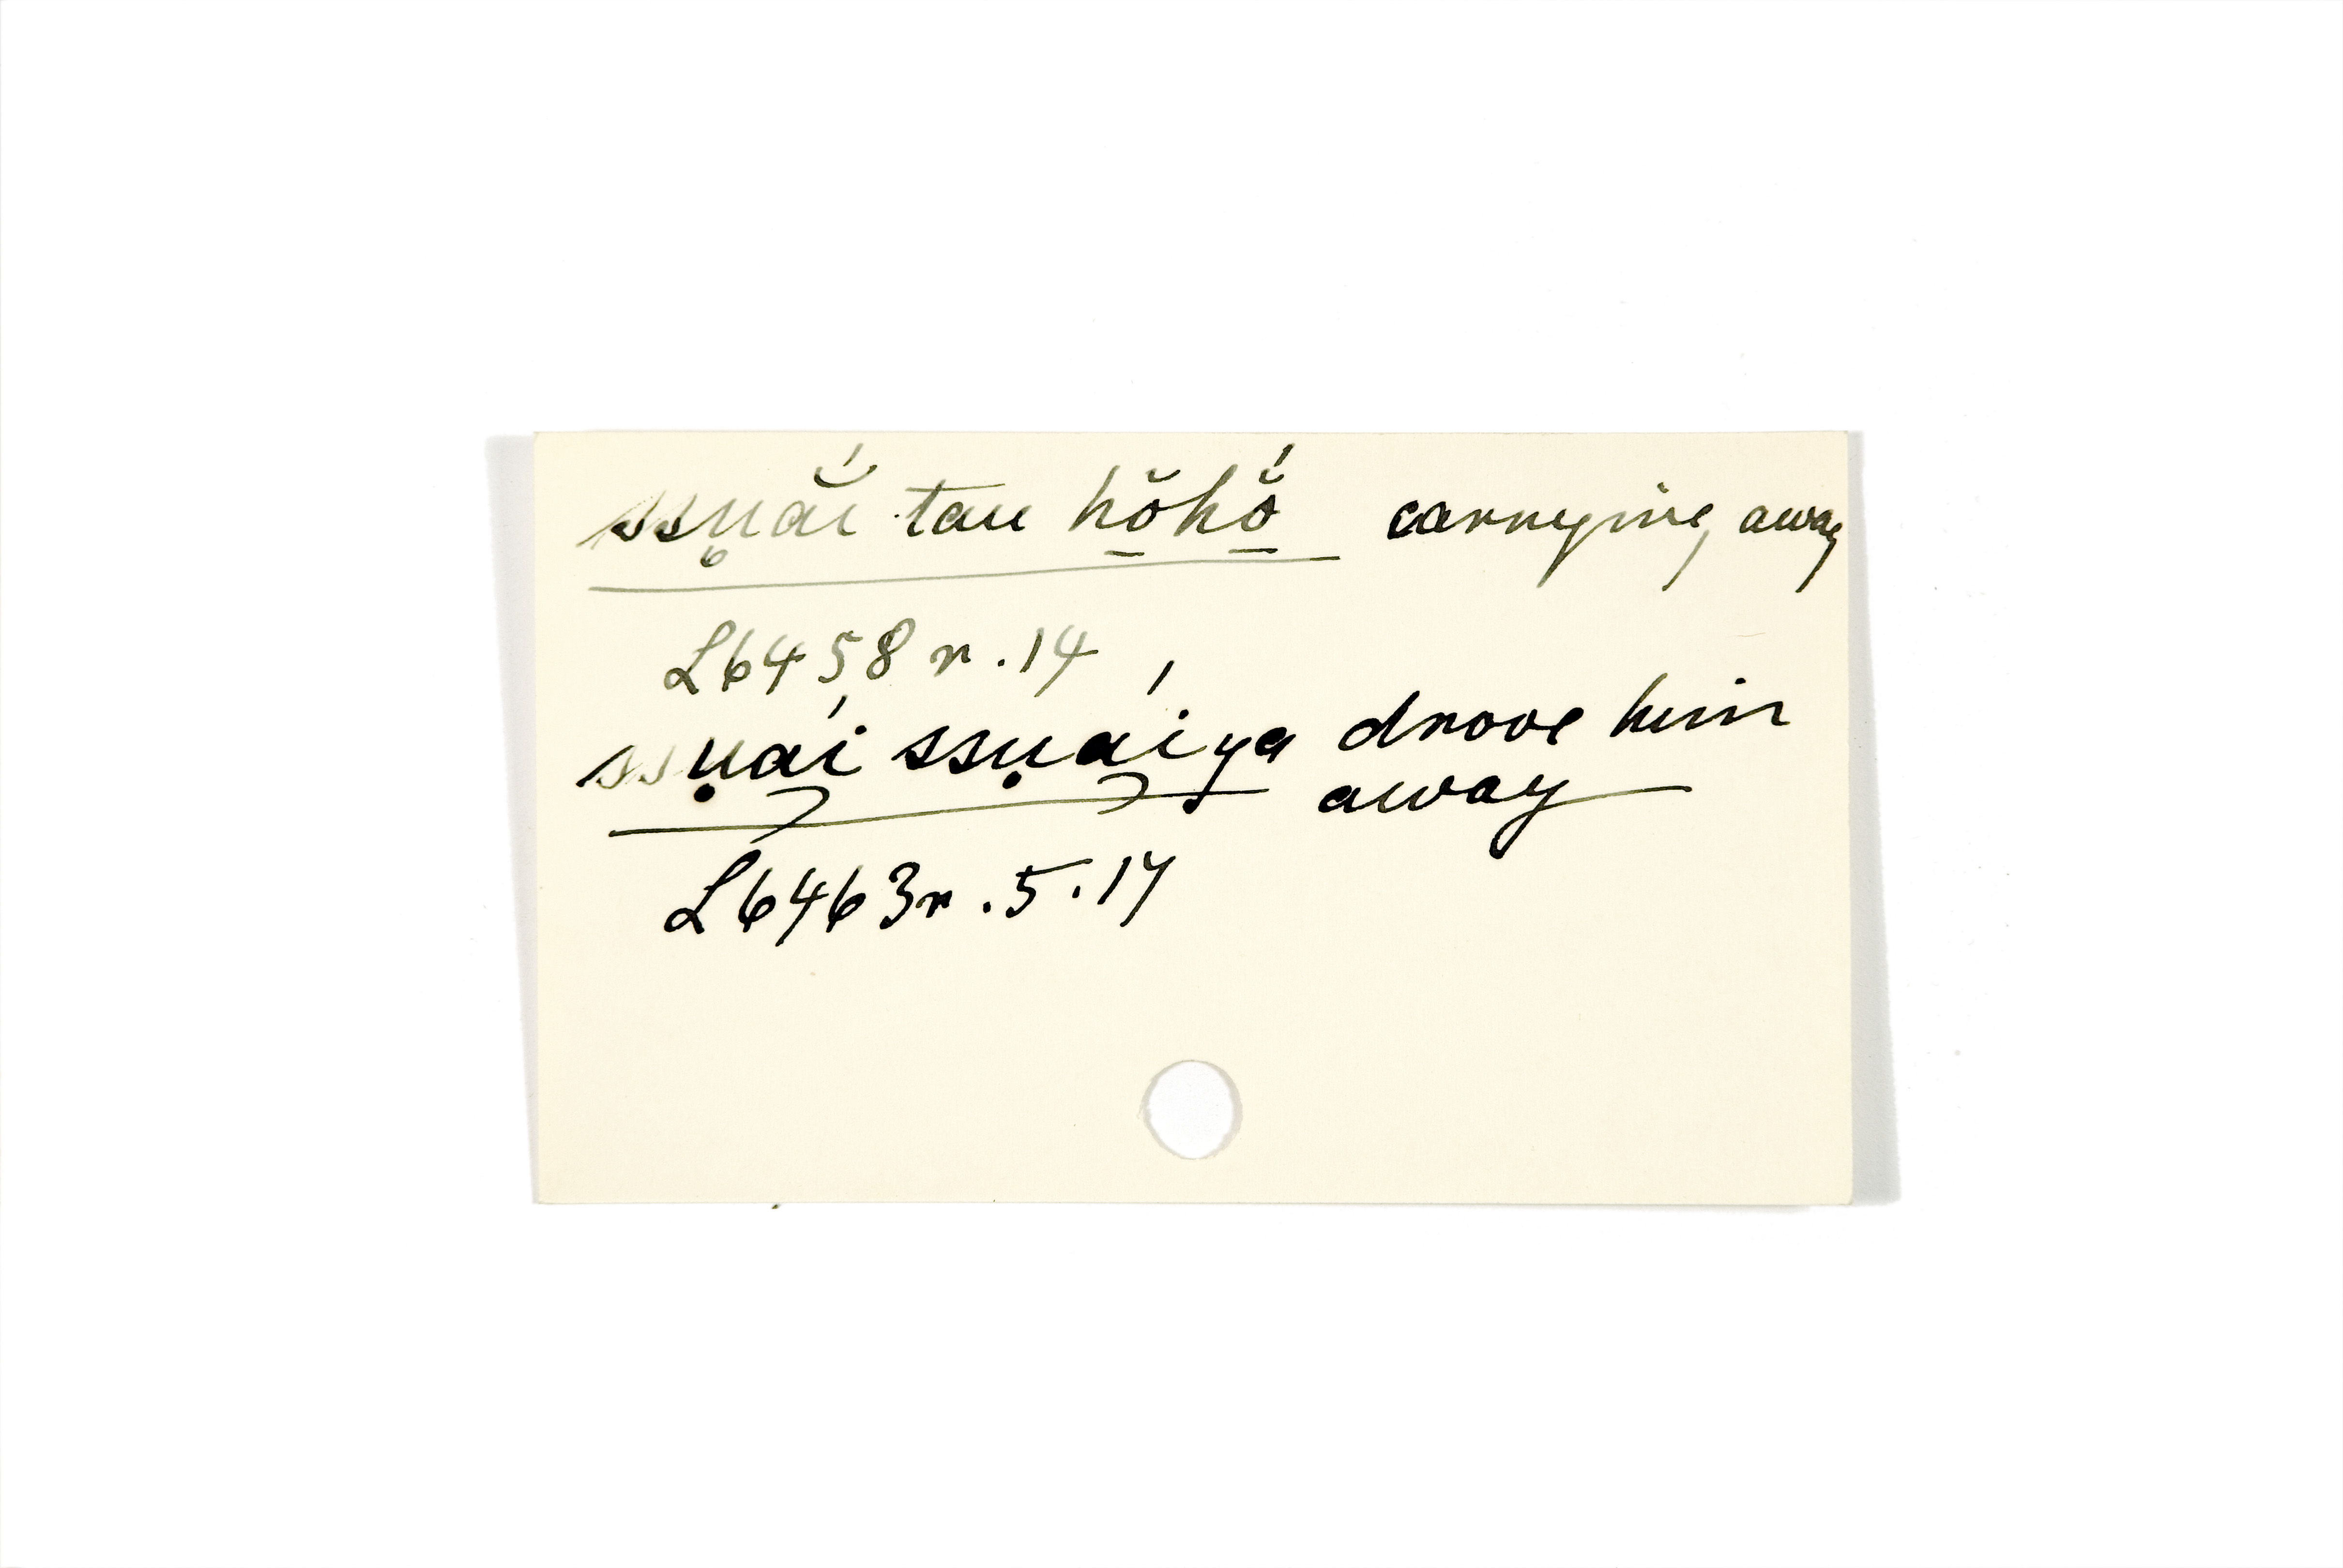 ssụắi tau hŏ̱hŏ̱́ carrying away
L6458 r. 14
ssụái ssụáiya drove him
away
L6463r. 5. 17